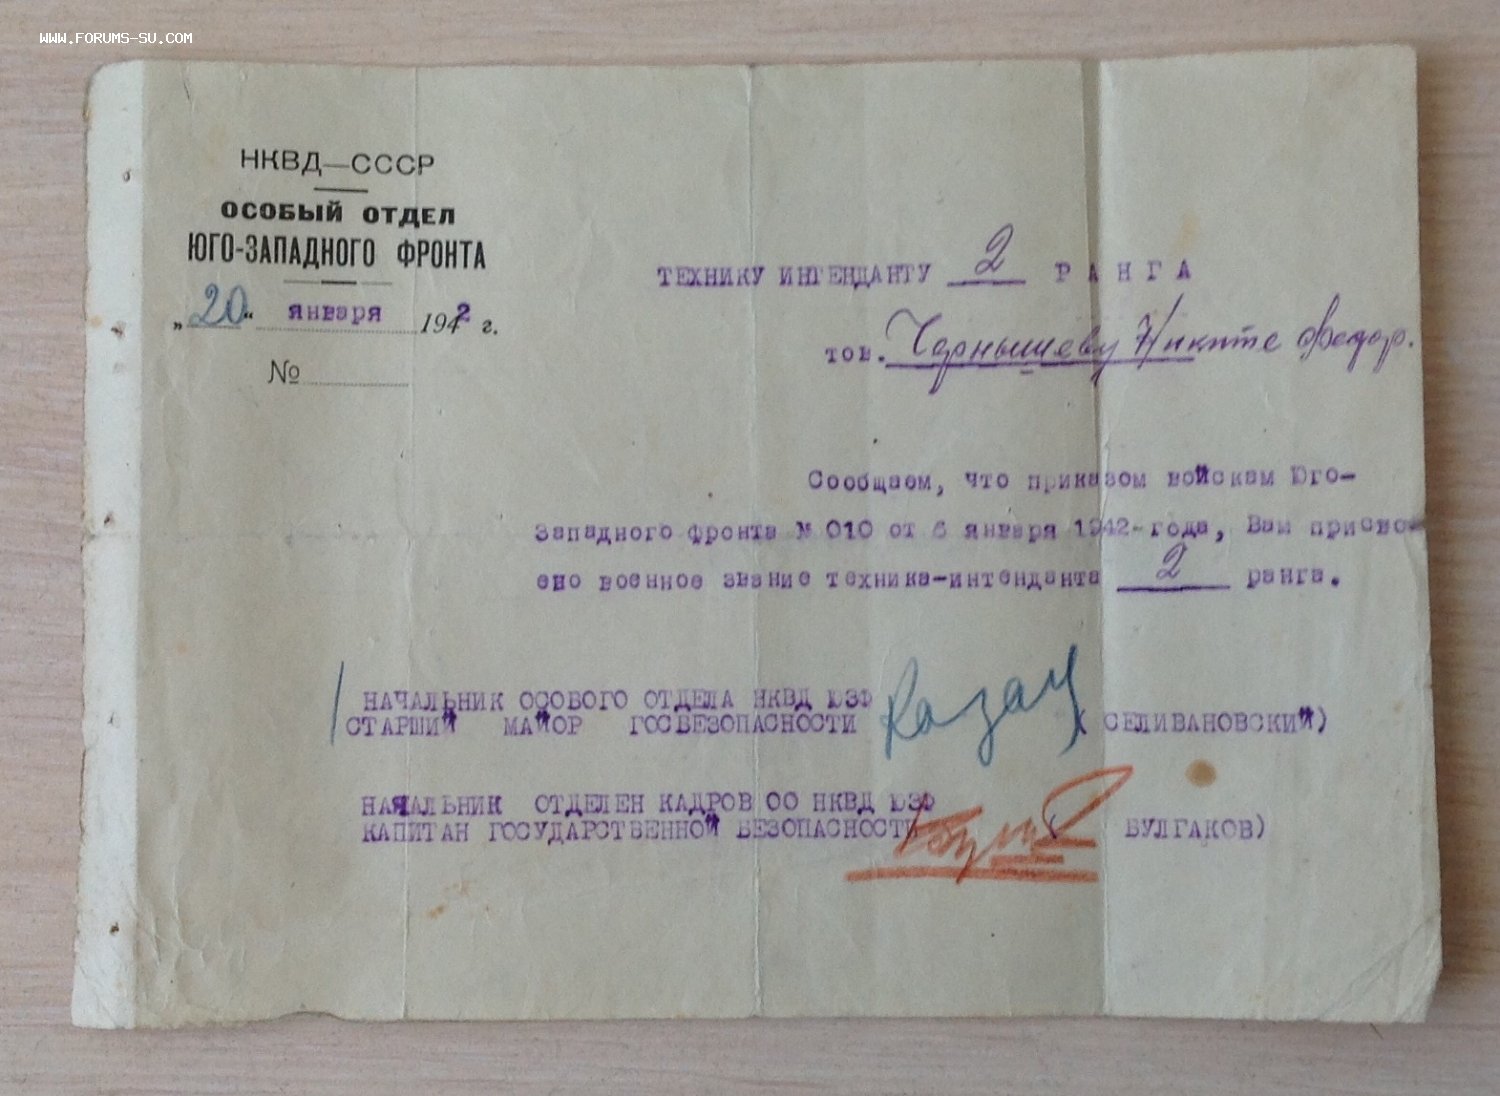 WWW.FORUMS-SU.COM
НКВД—СССР
ОСОБЫЙ ОТДЕЛ
ЮГО-ЗАПАДНОГО ФРОНТА
„20“ января 1942 г.
№
ТЕХНИКУ ИНТЕНДАНТУ 2 РАНГА
тов. Чернышеву Никите Федор.
Сообщаем, что приказом войскам Юго-
Западного фронта № 010 от 6 января 1942-года, Вам присво-
ено военное звание техника-интенданта 2 ранга.
НАЧАЛЬНИК ОСОБОГО ОТДЕЛА НКВД ЮЗФ
СТАРШИЙ МАЙОР ГОСБЕЗОПАСНОСТИ ( СЕЛИВАНОВСКИЙ)
НАЧАЛЬНИК ОТДЕЛЕН КАДРОВ ОО НКВД ЮЗФ
КАПИТАН ГОСУДАРСТВЕННОЙ БЕЗОПАСНОСТИ ( БУЛГАКОВ)